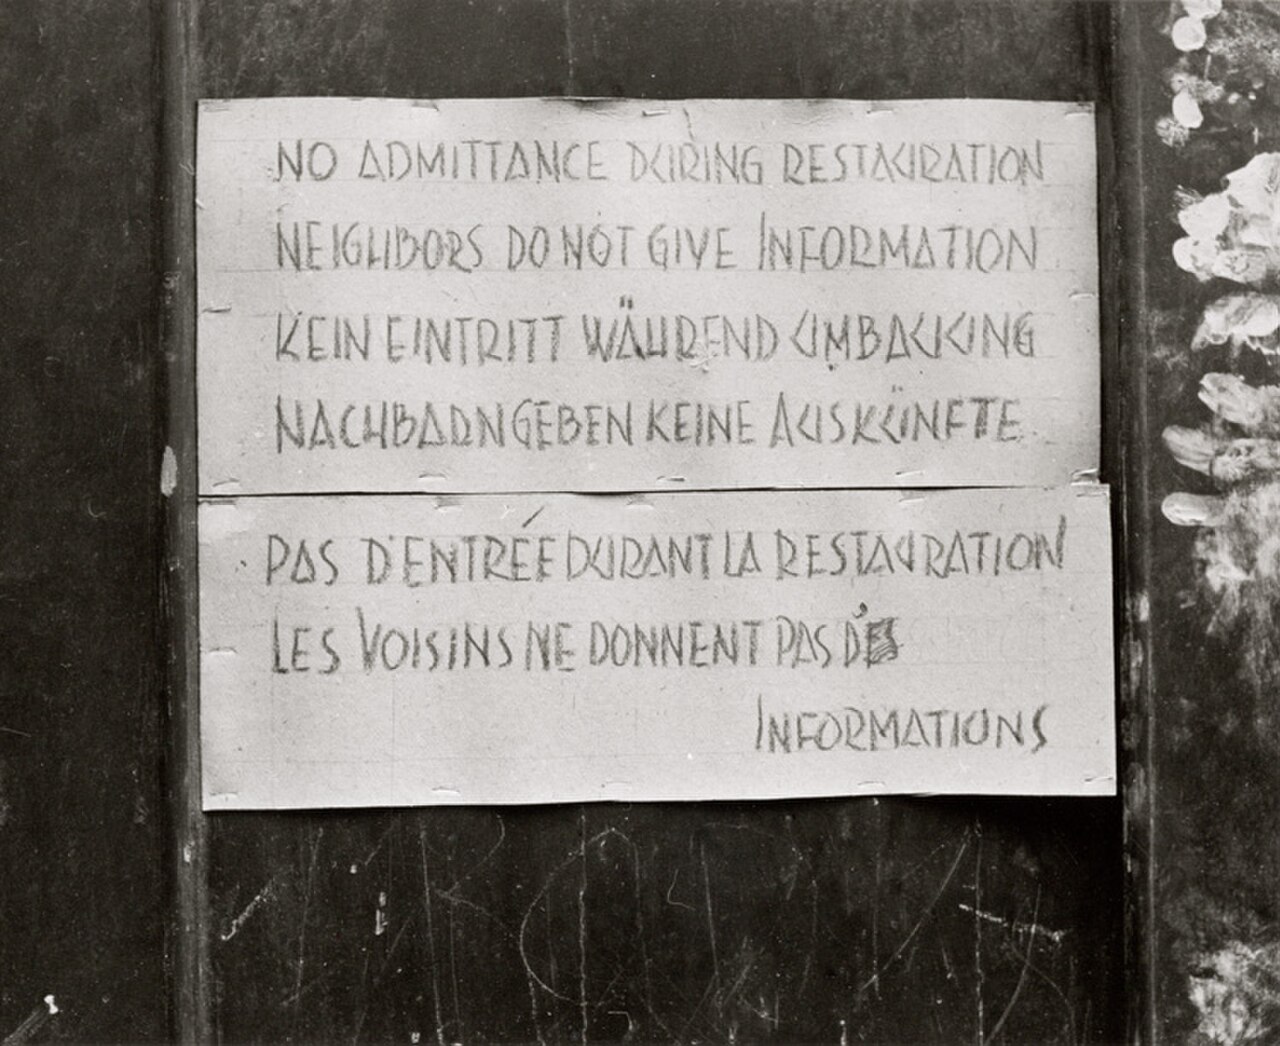 NO ADMITTANCE DURING RESTAURATION
NEIGHBORS DO NOT GIVE INFORMATION
KEIN EINTRITT WÄHREND UMBAUUNG
NACHBARN GEBEN KEINE AUSKÜNFTE
PAS D'ENTRÉE DURANT LA RESTAURATION
LES VOISINS NE DONNENT PAS D'
INFORMATIONS